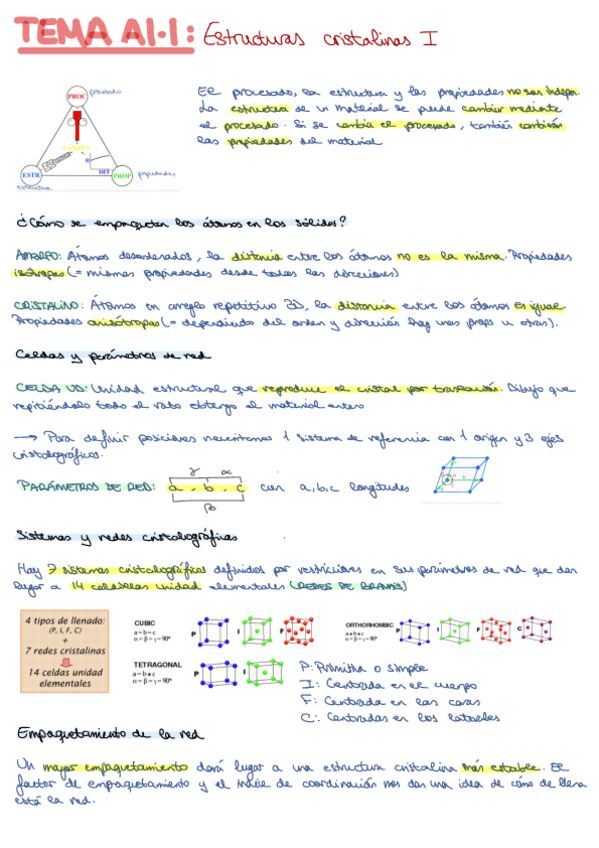 TEMA A1.1: Estructuras cristalinas I
PROC
procesado
LÁMINA
R
DEF
ESTR
PROP
propiedades
estructura
El procesado, la estructura y las propiedades no son indepen.
La estructura de un material se puede cambiar mediante
el procesado. Si se cambia el procesado, también cambiarán
las propiedades del material
¿Cómo se empaquetan los átomos en los sólidos?
AMORFO: Átomos desordenados, la distancia entre los átomos no es la misma. Propiedades
isótropas (= mismas propiedades desde todas las direcciones)
CRISTALINO: Átomos en arreglo repetitivo 3D, la distancia entre los átomos es igual.
Propiedades anisótropas (= dependiendo del orden y dirección hay unas props u otras).
Celdas y parámetros de red
CELDA UD: Unidad estructural que reproduce el cristal por traslación. Dibujo que
repitiéndolo todo el rato obtengo el material entero
→ Para definir posiciones necesitamos 1 sistema de referencia con 1 origen y 3 ejes
cristalográficos.
γ α
PARÁMETROS DE RED: a, b, c con a,b,c longitudes
β
Sistemas y redes cristalográficas
Hay 7 sistemas cristalográficos definidos por restricciones en sus parámetros de red que dan
lugar a 14 celdillas unidad elementales (REDES DE BRAVAIS)
4 tipos de llenado:
(P, I, F, C)
+
7 redes cristalinas
14 celdas unidad
elementales
CUBIC
a = b = c
α = β = γ = 90°
P
I
F
ORTHORHOMBIC
a ≠ b ≠ c
α = β = γ = 90°
P
I
F
C
TETRAGONAL
a = b ≠ c
α = β = γ = 90°
P
I
P: Primitiva o simple
I: Centrada en el cuerpo
F: Centrada en las caras
C: Centradas en los laterales
Empaquetamiento de la red
Un mayor empaquetamiento dará lugar a una estructura cristalina más estable. El
factor de empaquetamiento y el índice de coordinación nos dan una idea de cómo de llena
está la red.